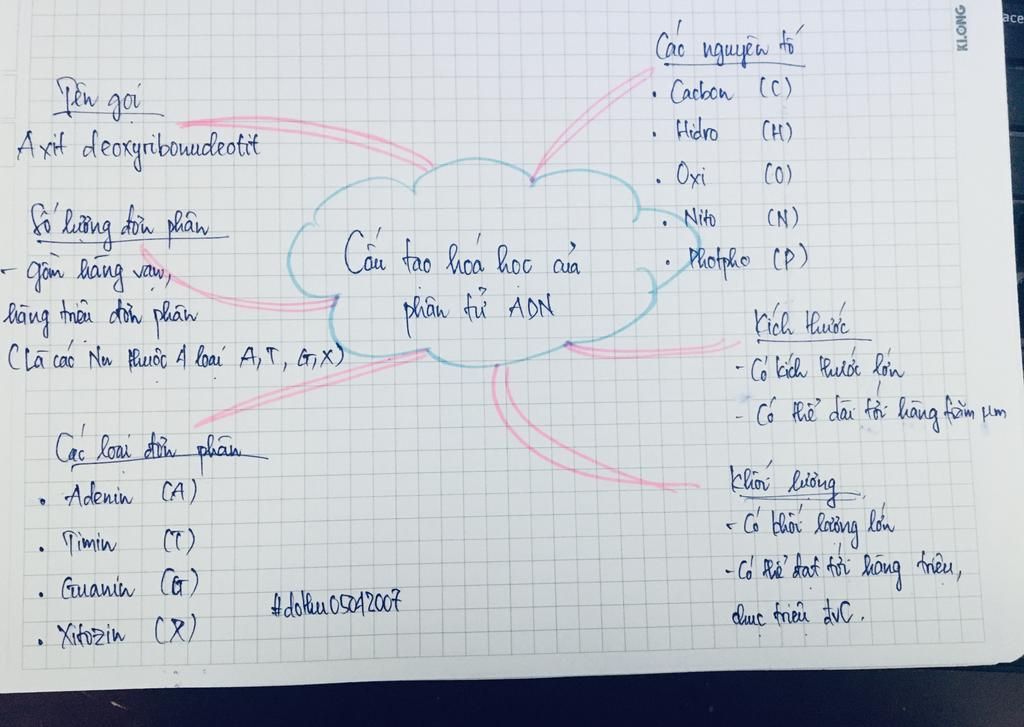 KLONG
ace
Các nguyên tố
• Cacbon (C)
• Hidro (H)
• Oxi (O)
• Nito (N)
• Photpho (P)
Tên gọi
Axit deoxyribonucleotit
Số lượng đơn phân
- gồm hàng vạn,
hàng triệu đơn phân
(Là các Nu thuộc 4 loại A, T, G, X)
Cấu tạo hoá học của
phân tử ADN
Kích thước
- Có kích thước lớn
- Có thể dài tới hàng trăm µm
Các loại đơn phân
• Adenin (A)
• Timin (T)
• Guanin (G)
• Xitozin (X)
Khối lượng
- Có khối lượng lớn
- Có thể đạt tới hàng triệu,
chục triệu đvC.
#dothu05042007